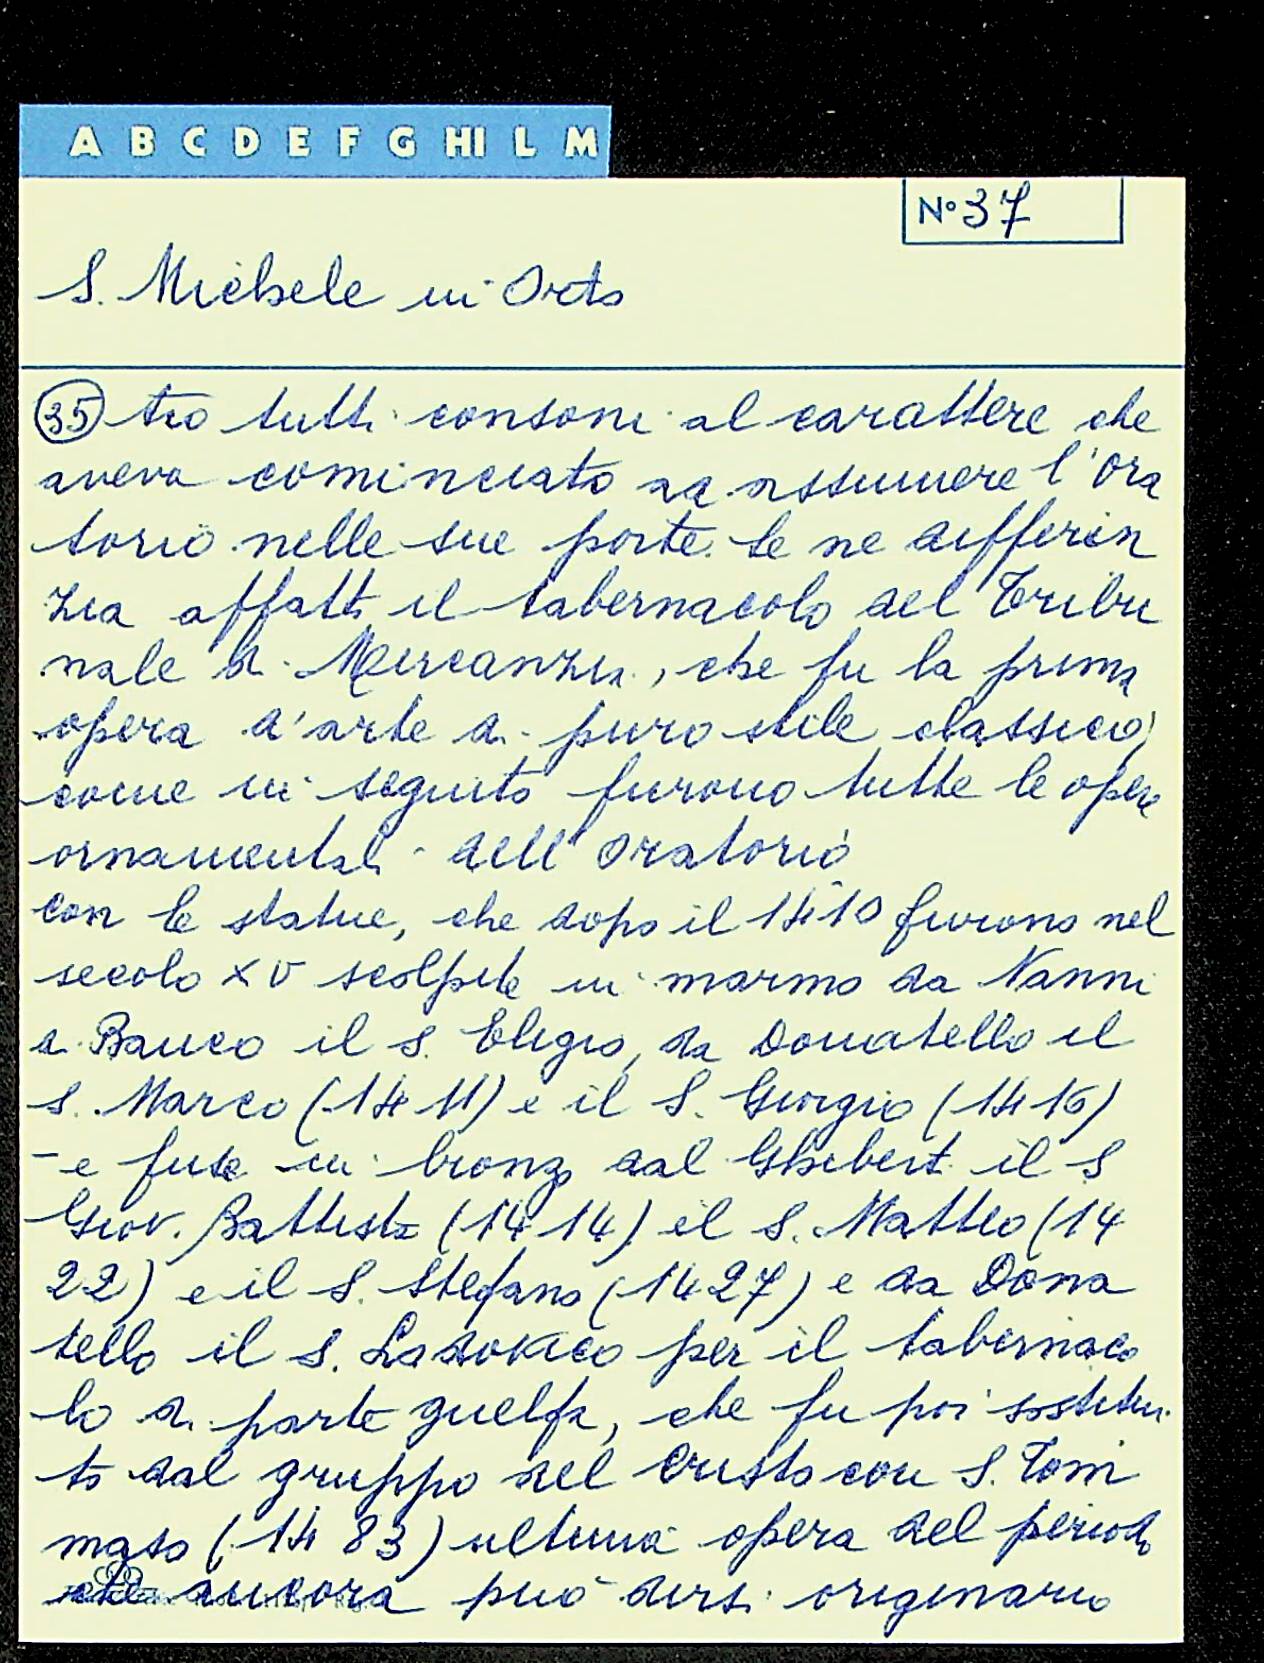 A B C D E F G HI L M
Nº 37
S. Michele in Orto
(35) tro tutti consoni al carattere che
aveva cominciato ad assumere l'ora
torio nelle sue porte. Se ne differen
zia affatto il tabernacolo del Tribu
nale di Mercanzia, che fu la prima
opera d'arte di puro stile classico,
come in seguito furono tutte le opere
ornamentali dell'Oratorio
con le statue, che dopo il 1410 furono nel
secolo XV scolpite in marmo da Nanni
di Banco il S. Eligio, da Donatello il
S. Marco (1411) e il S. Giorgio (1416)
- e fuse in bronzo dal Ghiberti il S
Giov. Battista (1414) il S. Matteo (14
22) e il S. Stefano (1427) e da Dona
tello il S. Lodovico per il tabernaco
lo di parte guelfa, che fu poi sostitui
to dal gruppo del Cristo con S. Tom
maso (1483) ultima opera del periodo
che ancora può dirsi originario